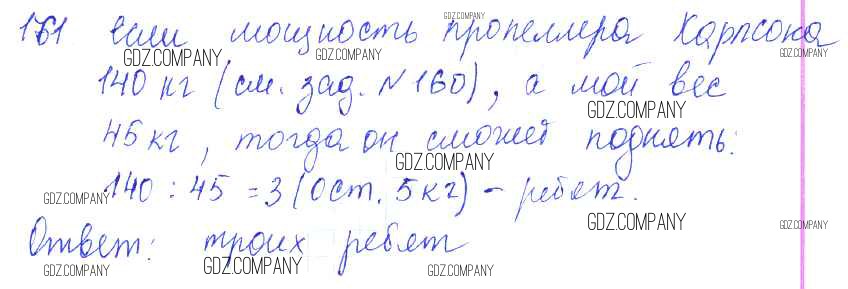 161 Если мощность пропеллера Карлсона
140 кг (см. зад. №160), а мой вес
45 кг, тогда он сможет поднять:
140 : 45 = 3 (Ост. 5 кг) – ребят.
Ответ: троих ребят
GDZ.COMPANY
GDZ.COMPANY
GDZ.COMPANY
GDZ.COMPANY
GDZ.COMPANY
GDZ.COMPANY
GDZ.COMPANY
GDZ.COMPANY
GDZ.COMPANY
GDZ.COMPANY
GDZ.COMPANY
GDZ.COMPANY
GDZ.COMPANY